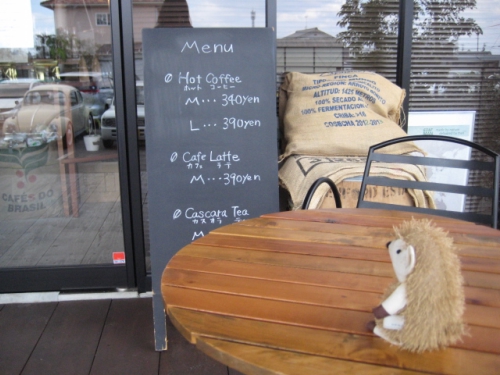 Menu
Hot Coffee
ホット コーヒー
M・・・340yen
L・・・390yen
Cafe Latte
カフェ ラテ
M・・・390yen
Cascara Tea
カスカラ ティー
M
ALTITUD:
100% SECADO A
100% FERMENTACION
CAFÉS DO
BRASIL